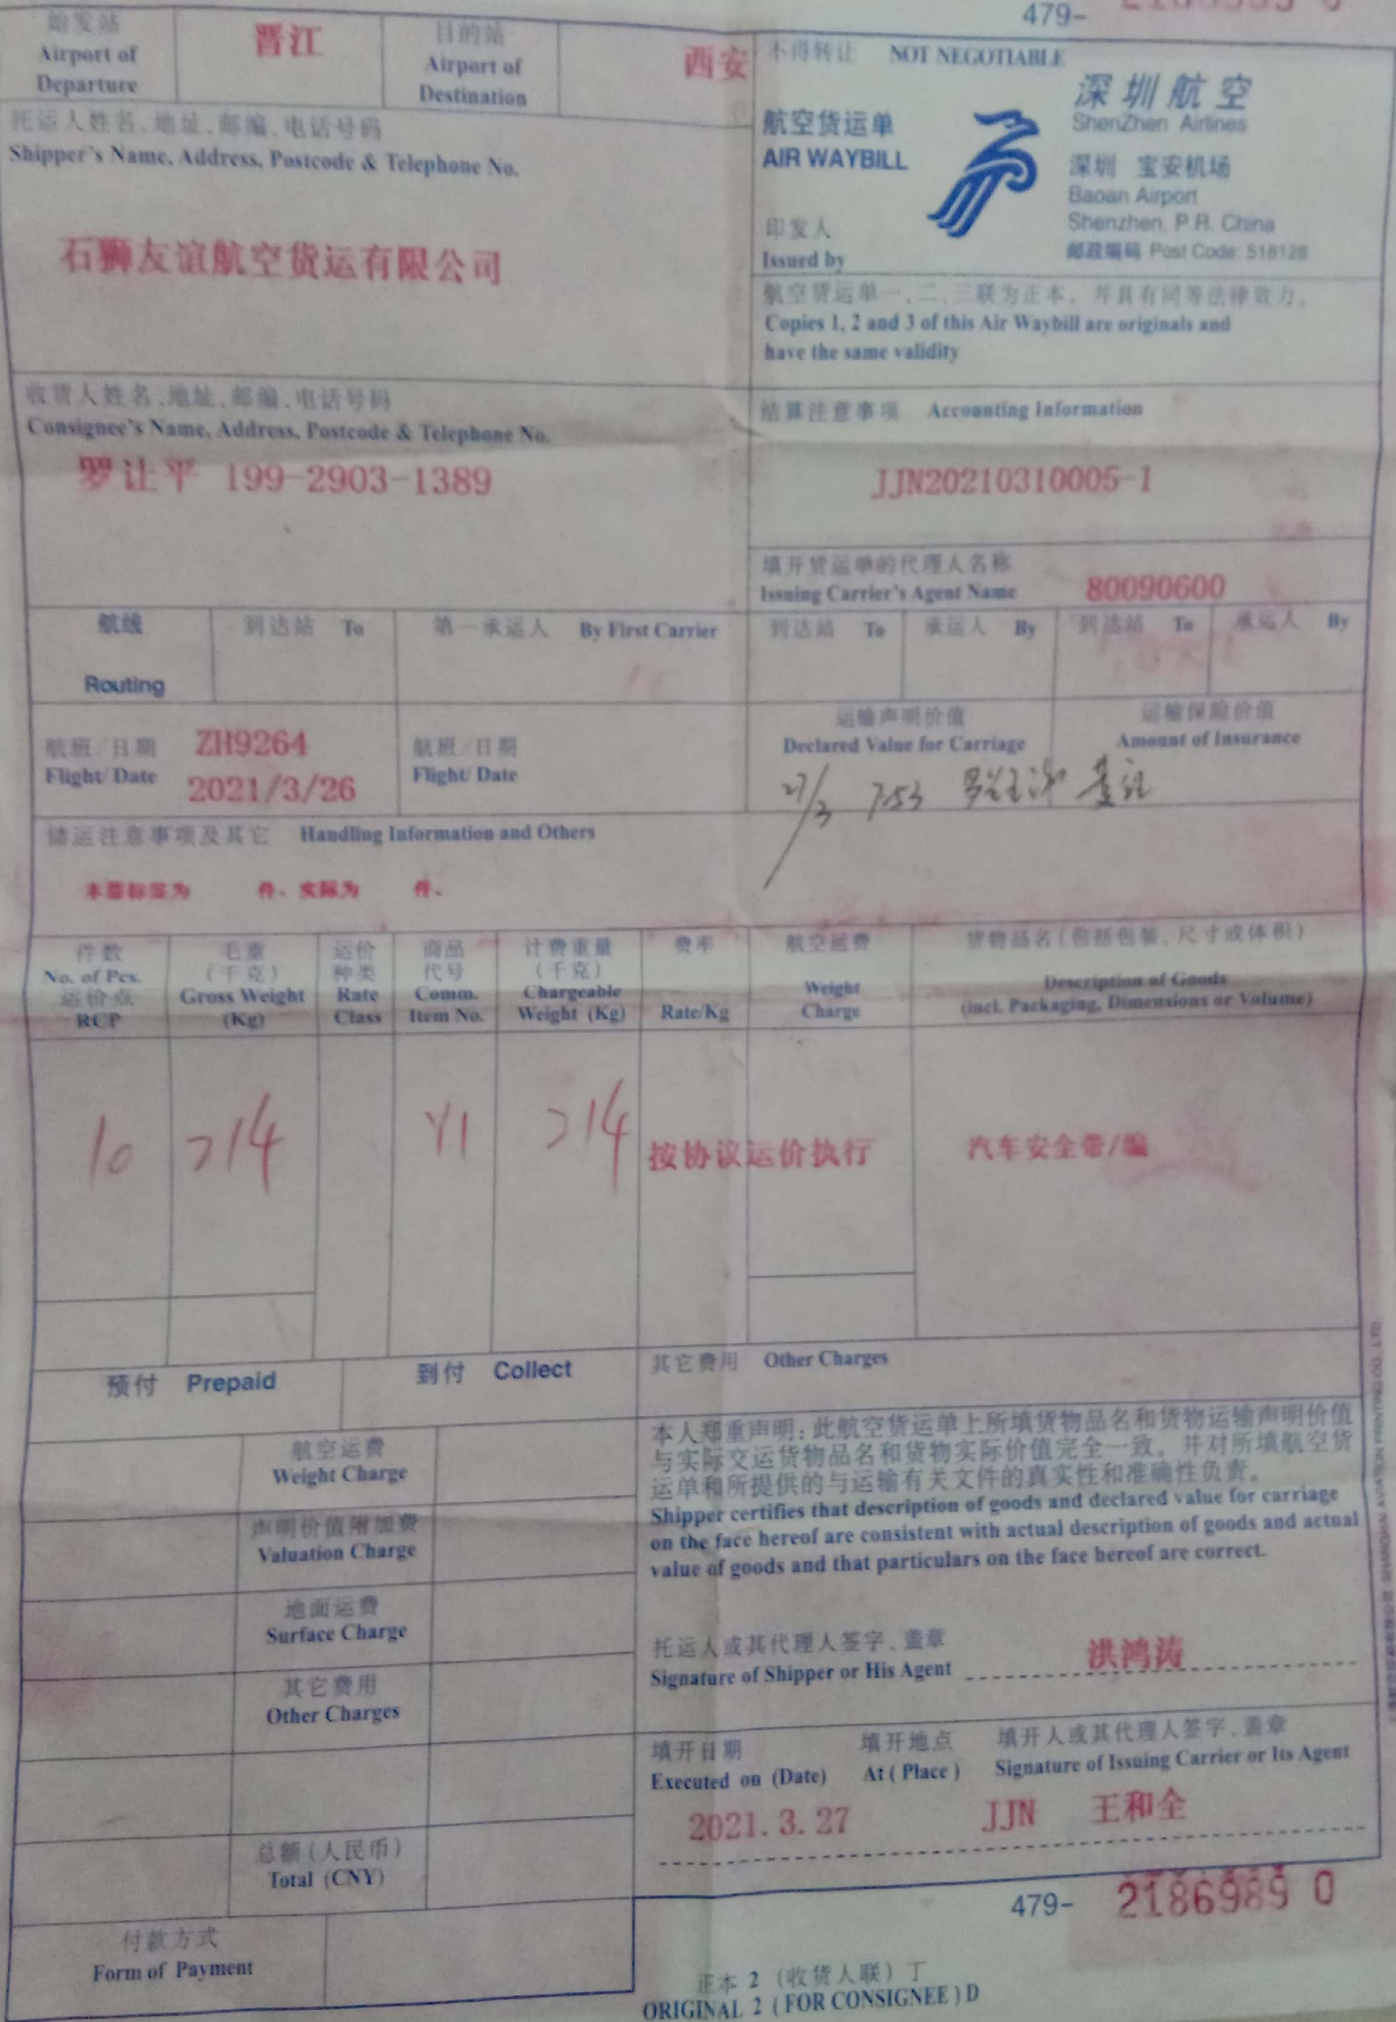 479-
始发站
Airport of
Departure
晋江
目的站
Airport of
Destination
西安
不得转让 NOT NEGOTIABLE
航空货运单
AIR WAYBILL
深圳航空
ShenZhen Airlines
深圳 宝安机场
Baoan Airport
Shenzhen, P.R. China
邮政编码 Post Code: 518128
印发人
Issued by
托运人姓名、地址、邮编、电话号码
Shipper's Name, Address, Postcode & Telephone No.
石狮友谊航空货运有限公司
航空货运单一、二、三联为正本，并具有同等法律效力。
Copies 1, 2 and 3 of this Air Waybill are originals and
have the same validity
收货人姓名、地址、邮编、电话号码
Consignee's Name, Address, Postcode & Telephone No.
罗让平 199-2903-1389
结算注意事项 Accounting Information
JJN20210310005-1
填开货运单的代理人名称
Issuing Carrier's Agent Name
80090600
航线
Routing
到达站 To
第一承运人 By First Carrier
到达站 To
承运人 By
到达站 To
承运人 By
航班/日期
Flight/Date
ZH9264
2021/3/26
航班/日期
Flight/Date
运输声明价值
Declared Value for Carriage
运输保险价值
Amount of Insurance
27/3 7:53
储运注意事项及其它 Handling Information and Others
本票标签为 件，实际为 件。
件数
No. of Pcs.
运价点
RCP
毛重
(千克)
Gross Weight
(Kg)
运价
种类
Rate
Class
商品
代号
Comm.
Item No.
计费重量
(千克)
Chargeable
Weight (Kg)
费率
Rate/Kg
航空运费
Weight
Charge
货物品名(包括包装、尺寸或体积)
Description of Goods
(incl. Packaging, Dimensions or Volume)
10
214
Y1
214
按协议运价执行
汽车安全带/编
预付 Prepaid
到付 Collect
其它费用 Other Charges
航空运费
Weight Charge
声明价值附加费
Valuation Charge
地面运费
Surface Charge
其它费用
Other Charges
总额(人民币)
Total (CNY)
付款方式
Form of Payment
本人郑重声明：此航空货运单上所填货物品名和货物运输声明价值
与实际交运货物品名和货物实际价值完全一致。并对所填航空货
运单和所提供的与运输有关文件的真实性和准确性负责。
Shipper certifies that description of goods and declared value for carriage
on the face hereof are consistent with actual description of goods and actual
value of goods and that particulars on the face hereof are correct.
托运人或其代理人签字、盖章
Signature of Shipper or His Agent
洪鸿涛
填开日期
Executed on (Date)
填开地点
At ( Place )
填开人或其代理人签字、盖章
Signature of Issuing Carrier or Its Agent
2021.3.27
JJN
王和全
479- 2186989 0
正本 2 (收货人联) 丁
ORIGINAL 2 ( FOR CONSIGNEE ) D